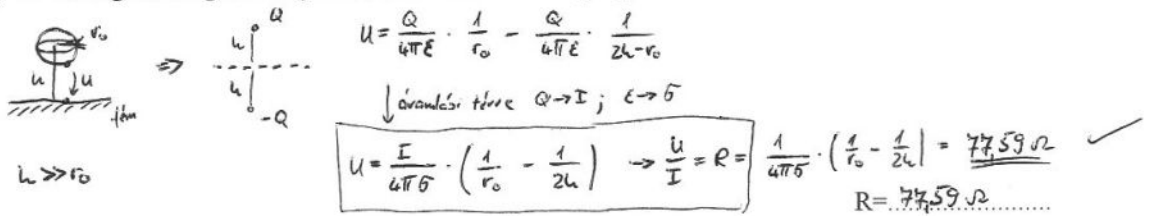 r₀
h
u
fém
h >> r₀
⇒
Q
h
h
-Q
U = Q/4πε · 1/r₀ - Q/4πε · 1/2h-r₀
↓ áramlási térre Q → I ; ε → σ
U = I/4πσ · (1/r₀ - 1/2h) → U/I = R = 1/4πσ · (1/r₀ - 1/2h) = 77,59 Ω ✓
R= 77,59 Ω